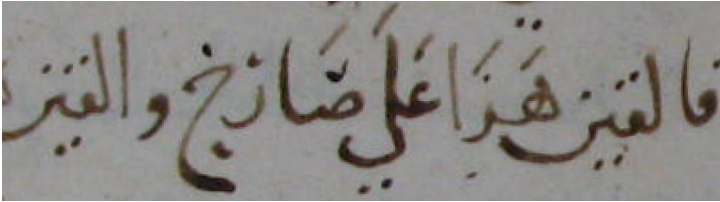 فالقين هَذَا عَلَي صَارخ والقين